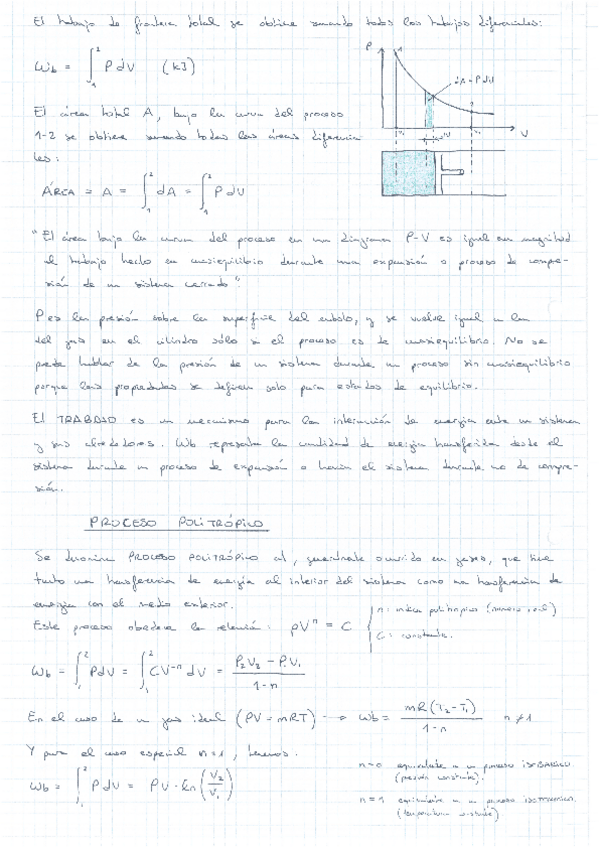 El trabajo de frontera total se obtiene sumando todos los trabajos diferenciales:
Wb = ∫₁² P dV (kJ)
P
1
dA = P dV
2
V₁ dV V₂ V
El área total A, bajo la curva del proceso
1-2 se obtiene sumando todas las áreas diferencia
les:
ÁREA = A = ∫₁² dA = ∫₁² P dV
"El área bajo la curva del proceso en un diagrama P-V es igual en magnitud
al trabajo hecho en cuasiequilibrio durante una expansión o proceso de compre-
sión de un sistema cerrado".
P es la presión sobre la superficie del émbolo, y se vuelve igual a la
del gas en el cilindro sólo si el proceso es de cuasiequilibrio. No se
puede hablar de la presión de un sistema durante un proceso sin cuasiequilibrio
porque las propiedades se definen solo para estados de equilibrio.
El TRABAJO es un mecanismo para la interacción de energía entre un sistema
y sus alrededores. Wb representa la cantidad de energía transferida desde el
sistema durante un proceso de expansión o hacia el sistema durante uno de compre-
sión.
PROCESO POLITRÓPICO
Se denomina PROCESO POLITRÓPICO al, generalmente ocurrido en gases, que tiene
tanto una transferencia de energía al interior del sistema como una transferencia de
energía con el medio exterior.
Este proceso obedece la relación: PVⁿ = C
n: índice politrópico (número real)
C: constante.
Wb = ∫₁² P dV = ∫₁² C V⁻ⁿ dV = (P₂V₂ - P₁V₁) / (1-n)
En el caso de un gas ideal (PV = mRT) → Wb = mR(T₂-T₁) / (1-n) n ≠ 1
Y para el caso especial n=1, tenemos.
Wb = ∫₁² P dV = PV · Ln(V₂/V₁)
n=0 equivalente a un proceso ISOBÁRICO
(presión constante).
n=1 equivalente a un proceso ISOTÉRMICO.
(temperatura constante).